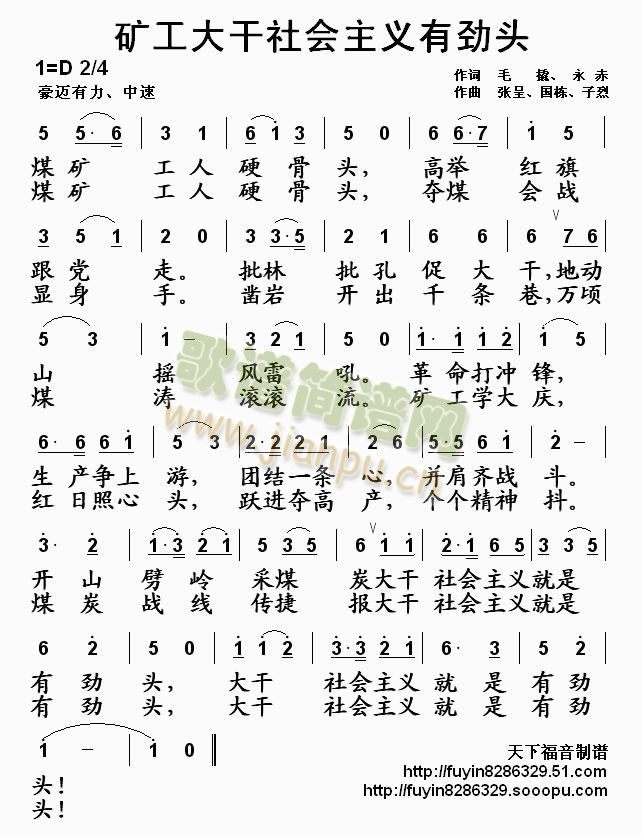 矿工大干社会主义有劲头
1=D 2/4
作词 毛 撬、永赤
豪迈有力、中速
作曲 张呈、国栋、子烈
5 5·6 3 1 6 1 3 5 0 6 6·7 1 5
煤矿 工人硬骨头，高举 红旗
煤矿 工人硬骨头，夺煤 会战
3 5 1 2 0 3 3·5 2 1 6 6 6 7 6
跟党 走。批林 批孔促大干，地动
显身 手。凿岩 开出千条巷，万顷
5 3 1 – 3 2 1 5 0 1· 1 1 1 2 1 5
山 摇 风雷 吼。革命打冲锋，
煤 涛 滚滚 流。矿工学大庆，
歌谱简谱网
www.jianpu.cn
6· 6 6 6 1 5 3 2·2 2 1 2 6 5·5 6 1 2 –
生产争上游，团结一条心，并肩齐战斗。
红日照心头，跃进夺高产，个个精神抖。
3· 2 1·3 2 1 5 3 5 6· 1 2·1 6 5 3 5 2 3
开山劈岭采煤 炭大干 社会主义就是
煤炭战线传捷 报大干 社会主义就是
6 2 5 0 1 1 2 3·3 2 1 6· 3 5 2
有劲头，大干 社会主义就是有劲
有劲头，大干 社会主义就是有劲
1 – 1 0
天下福音制谱
头！
http://fuyin8286329.51.com
头！
http://fuyin8286329.sooopu.com